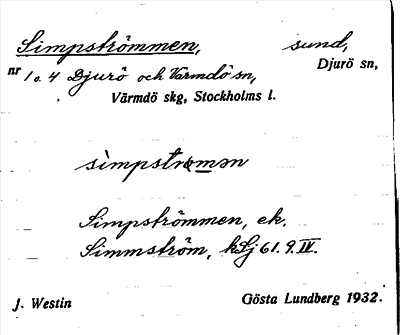 Simpströmmen, sund,
nr 1 o. 4 Djurö och Värmdö sn, Djurö sn,
Värmdö skg, Stockholms l.
sìmpstrømən
Simpströmmen, ek.
Simmström, kSj 61. 9. IV.
J. Westin Gösta Lundberg 1932.